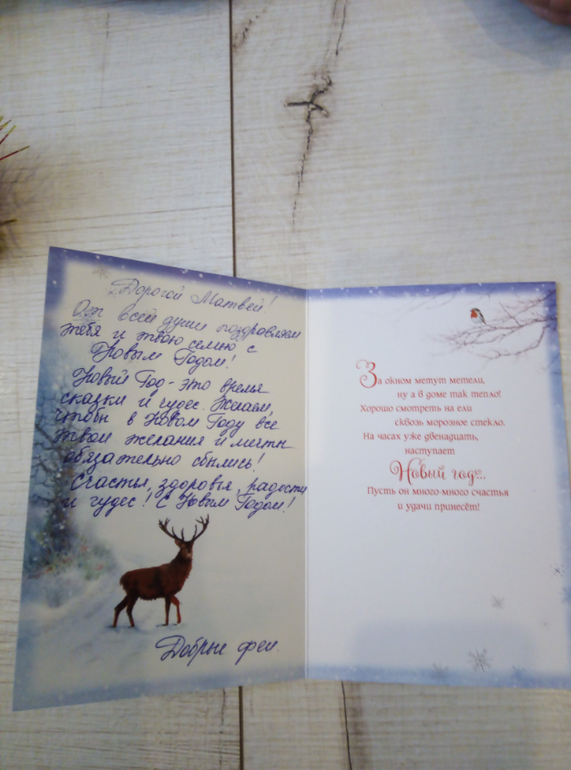 Дорогой Матвей!
От всей души поздравляем
тебя и твою семью с
Новым Годом!
Новый Год - это время
сказки и чудес. Желаем,
чтобы в Новом Году все
твои желания и мечты
обязательно сбылись!
Счастья, здоровья, радости
и чудес! С Новым Годом!
Добрые феи.
За окном метут метели,
ну а в доме так тепло!
Хорошо смотреть на ели
сквозь морозное стекло.
На часах уже двенадцать,
наступает
Новый год...
Пусть он много-много счастья
и удачи принесёт!